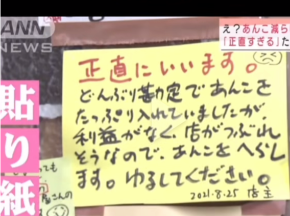 ANN
NEWS
え?あんこ減ら
「正直すぎる」た
貼り紙
正直にいいます。
どんぶり勘定であんこを
たっぷり入れていましたが、
利益がなく、店がつぶれ
そうなので、あんこをへらし
ます。ゆるしてください。
2021.8.25 店主